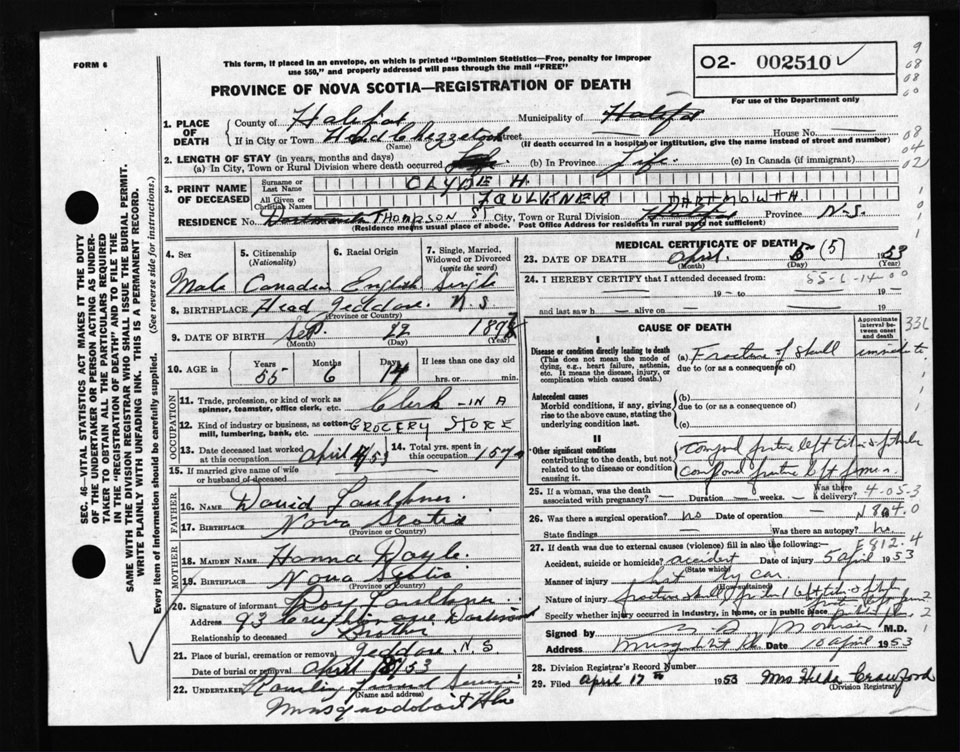 FORM 6
This form, if placed in an envelope, on which is printed "Dominion Statistics—Free, penalty for improper
use $50," and properly addressed will pass through the mail "FREE"
O2- 002510 ✓
For use of the Department only
PROVINCE OF NOVA SCOTIA—REGISTRATION OF DEATH
1. PLACE OF DEATH
County of Halifax Municipality of Halifax
If in City or Town Head Chezzetcook street — House No. —
(Name) (If death occurred in a hospital or institution, give the name instead of street and number)
2. LENGTH OF STAY (in years, months and days)
(a) In City, Town or Rural Division where death occurred (b) In Province Life. (c) In Canada (if immigrant)
3. PRINT NAME OF DECEASED
Surname or Last Name CLYDE H.
All Given or Christian Names FAULKNER DARTMOUTH.
RESIDENCE No. Dartmouth THOMPSON St City, Town or Rural Division Province N.S.
(Residence means usual place of abode. Post Office Address for residents in rural parts not sufficient)
4. Sex Male
5. Citizenship (Nationality) Canadian
6. Racial Origin English
7. Single, Married, Widowed or Divorced (write the word) Single
8. BIRTHPLACE Head Jeddore N.S.
(Province or Country)
9. DATE OF BIRTH Sep. 22 1897
(Month) (Day) (Year)
10. AGE in Years 55 Months 6 Days 14 If less than one day old
hrs. or min.
OCCUPATION
11. Trade, profession, or kind of work as spinner, teamster, office clerk, etc. Clerk - IN A
12. Kind of industry or business, as cotton mill, lumbering, bank, etc. GROCERY STORE
13. Date deceased last worked at this occupation April 4/53
14. Total yrs. spent in this occupation
15. If married give name of wife or husband of deceased
FATHER
16. NAME David Faulkner
17. BIRTHPLACE Nova Scotia
(Province or Country)
MOTHER
18. MAIDEN NAME Hanna Doyle.
19. BIRTHPLACE Nova Scotia
(Province or Country)
20. Signature of informant Roy Faulkner.
Address 93 Creighton ave Dartmouth
Relationship to deceased Brother
21. Place of burial, cremation or removal Jeddore N.S
Date of burial or removal April 8/53
22. UNDERTAKER Funeral Service
(Name and address)
Musquodoboit Hbr
MEDICAL CERTIFICATE OF DEATH
23. DATE OF DEATH April. 5 (5) 1953
(Month) (Day) (Year)
24. I HEREBY CERTIFY that I attended deceased from: 55-6-14-00
19 — to 19
and last saw h — alive on — 19
CAUSE OF DEATH
Approximate interval between onset and death
I
Disease or condition directly leading to death
(This does not mean the mode of dying, e.g., heart failure, asthenia, etc. It means the disease, injury, or complication which caused death.)
(a) Fracture of skull immediate
due to (or as a consequence of)
Antecedent causes
Morbid conditions, if any, giving rise to the above cause, stating the underlying condition last.
(b)
due to (or as a consequence of)
(c)
II
Other significant conditions
contributing to the death, but not related to the disease or condition causing it.
Compound fracture left tibia & fibula
Compound fracture left femur.
25. If a woman, was the death associated with pregnancy? — Duration — weeks. Was there a delivery? 4-05-3
26. Was there a surgical operation? no Date of operation — N804.0
State findings — Was there an autopsy? No.
27. If death was due to external causes (violence) fill in also the following:— E812.4
Accident, suicide or homicide? accident Date of injury 5 april 1953
(State which)
Manner of injury hit by car.
(How sustained)
Nature of injury fracture skull,
Specify whether injury occurred in industry, in home, or in public place
Signed by M.D.
Address Musquodoboit Hb. Date 10 april 1953
28. Division Registrar's Record Number
29. Filed April 17th 1953 Mrs Hilda Crawford
(Division Registrar)
SEC. 46—VITAL STATISTICS ACT MAKES IT THE DUTY
OF THE UNDERTAKER OR PERSON ACTING AS UNDER-
TAKER TO OBTAIN ALL THE PARTICULARS REQUIRED
IN THE "REGISTRATION OF DEATH" AND TO FILE THE
SAME WITH THE DIVISION REGISTRAR WHO SHALL ISSUE THE BURIAL PERMIT.
WRITE PLAINLY WITH UNFADING INK. THIS IS A PERMANENT RECORD.
Every item of information should be carefully supplied. (See reverse side for instructions.)